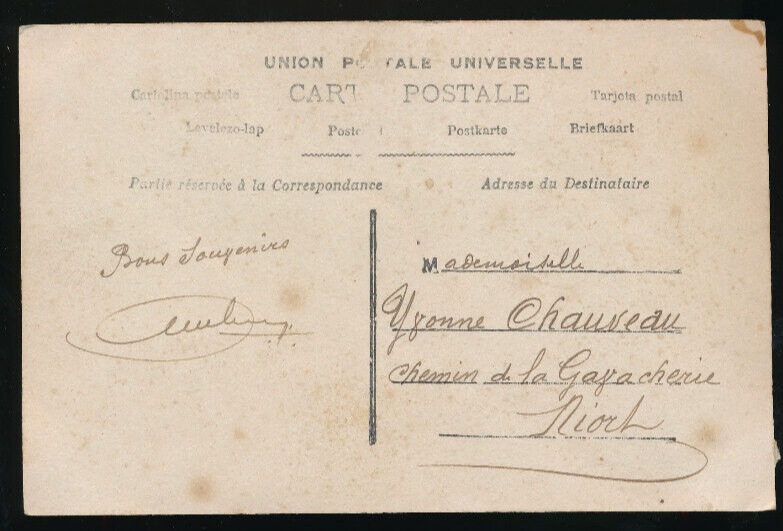 UNION POSTALE UNIVERSELLE
CARTE POSTALE
Cartolina postale Tarjeta postal
Levelezo-lap Postkarte Briefkaart
Partie réservée à la Correspondance
Adresse du Destinataire
Bons Souvenirs
Mademoiselle
Yvonne Chauveau
Chemin de la Gavacherie
Niort